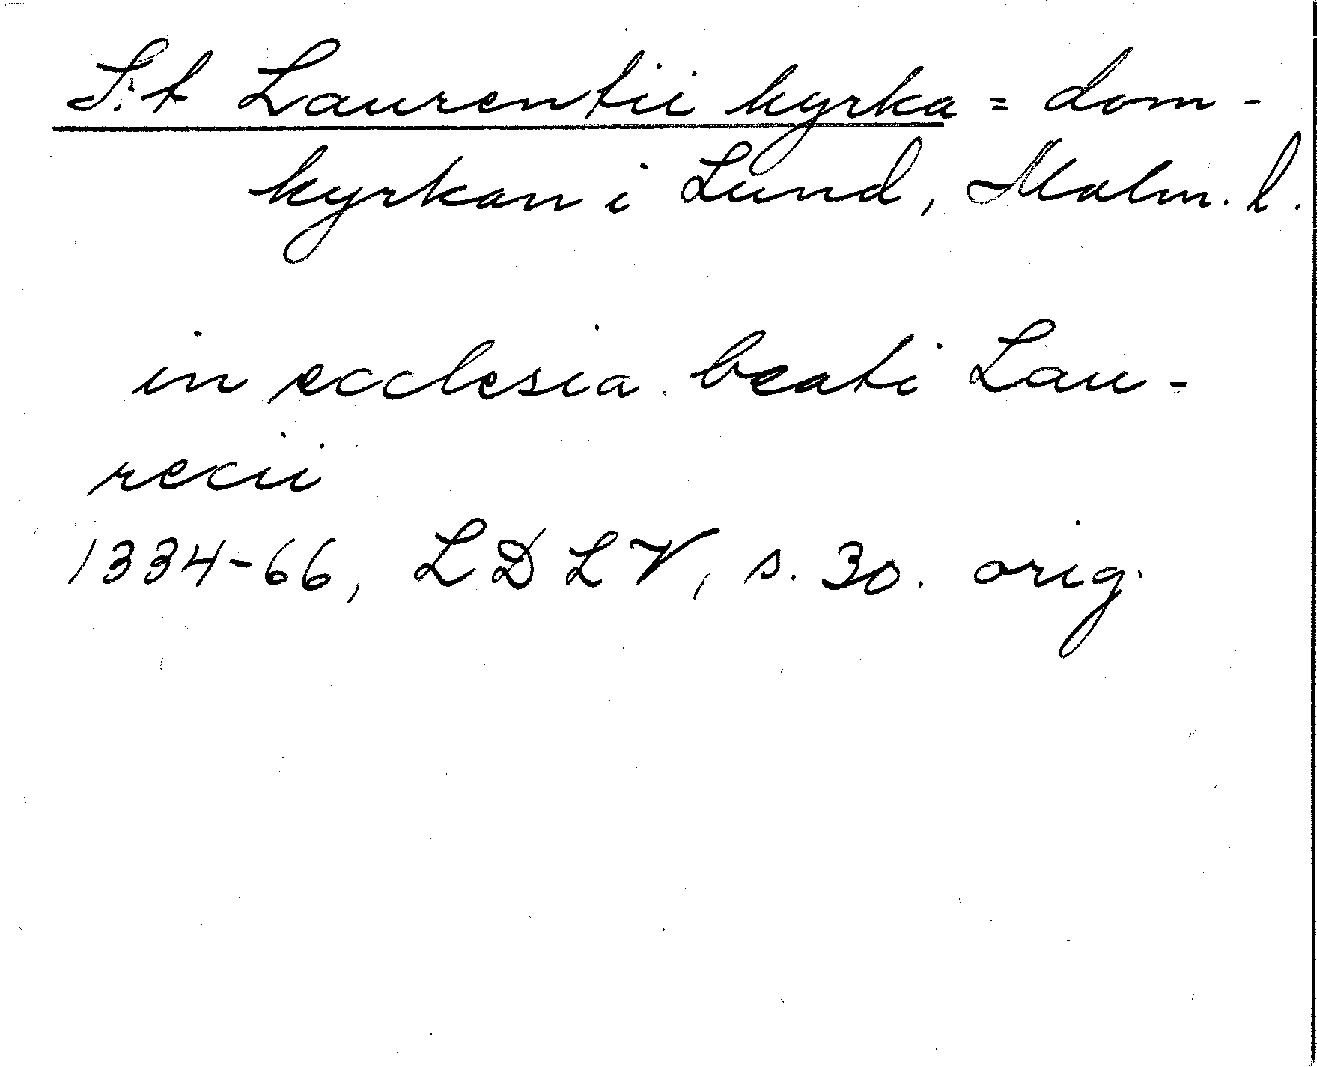 S:t Laurentii kyrka = dom-
kyrkan i Lund, Malm. l.
in ecclesia beati Lau-
recii
1334-66, LDLV, s. 30. orig.